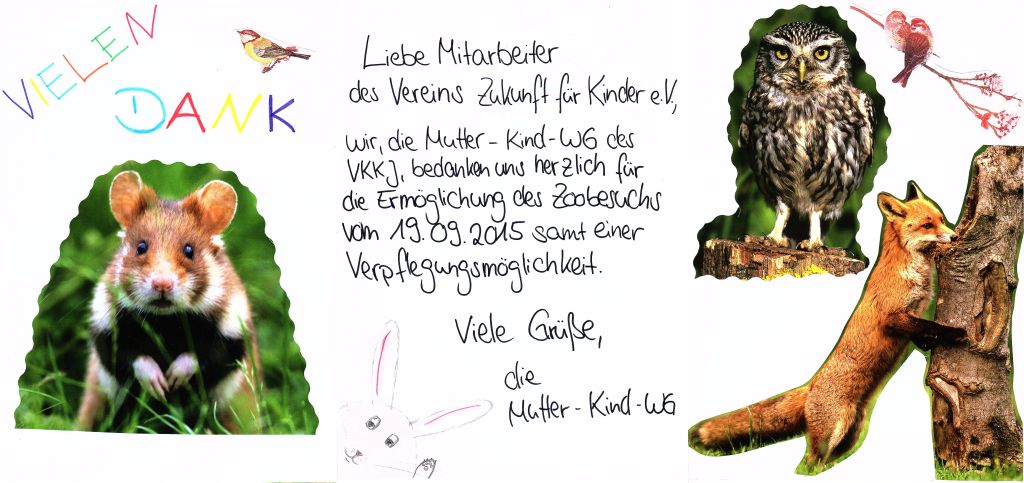 VIELEN
DANK
Liebe Mitarbeiter
des Vereins Zukunft für Kinder e.V.,
wir, die Mutter-Kind-WG des
VKKJ, bedanken uns herzlich für
die Ermöglichung des Zoobesuchs
vom 19.09.2015 samt einer
Verpflegungsmöglichkeit.
Viele Grüße,
die
Mutter-Kind-WG